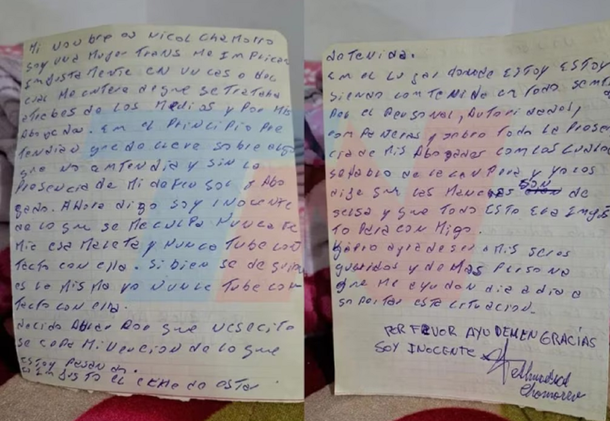 Mi nombre es Nicol Chamorro
soy una Muger trans Me Implican
Injusta Mente en un caso o del
cual Me entera de que se trataba
atrebes de los Medios y por Mis
Abogada. En el Principio Pre
tendian que declare sobre algo
que no entendia y sin la
Presencia de Mi defensor o Abo
gado. Ahora digo soy inocente
de lo que se Me culpa Nunca fue
Mie esa Maleta y Nunca tube con
tacto con ella. si bien se de quien
es la Misma yo Nunca tube con
tacto con ella.
decido Abler Por que Nesecito
se sepa Mi vercion de lo que
Estoy Pasando
injusto el echo de estar
detenida.
En el lugar donde Estoy Estoy
siendo contenida en todo sentido
Por el Personal, Autoridades,
compañeras y sobre todo la Presen
cia de Mis Abogadas con las cuales
se hablo de la cau Para y yo les
dige que las Manchas son de
salsa y que todo esto Era Injus
to Para con Migo
quiero agradeser a Mis seres
queridos y de Mas Persona
que Me ayudan dia a dia a
soportar esta cituacion.
POR FAVOR AYUDEMEN GRACIAS
SOY INOCENTE
Chamorro